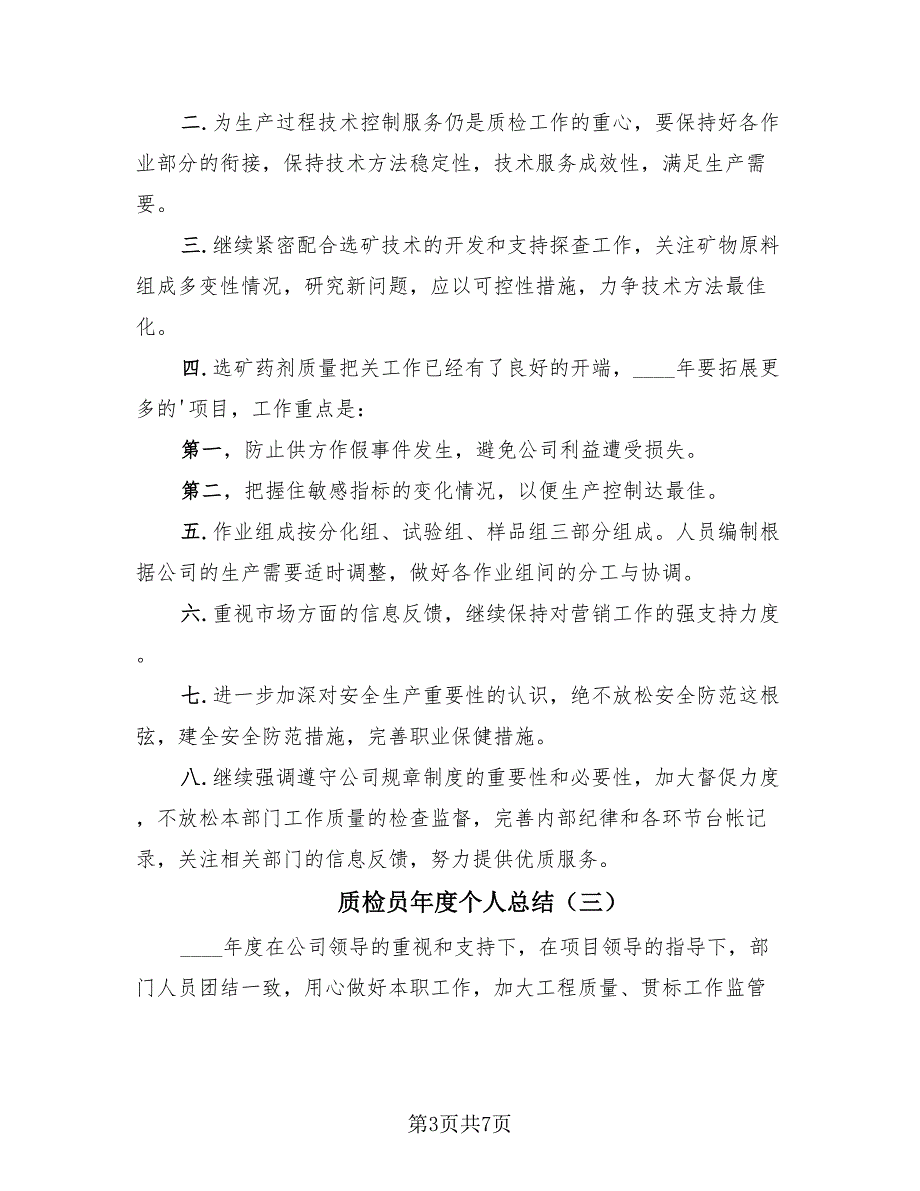 二.为生产过程技术控制服务仍是质检工作的重心，要保持好各作
业部分的衔接，保持技术方法稳定性，技术服务成效性，满足生产需
要。
三.继续紧密配合选矿技术的开发和支持探查工作，关注矿物原料
组成多变性情况，研究新问题，应以可控性措施，力争技术方法最佳
化。
四.选矿药剂质量把关工作已经有了良好的开端，____年要拓展更
多的'项目，工作重点是：
第一，防止供方作假事件发生，避免公司利益遭受损失。
第二，把握住敏感指标的变化情况，以便生产控制达最佳。
五.作业组成按分化组、试验组、样品组三部分组成。人员编制根
据公司的生产需要适时调整，做好各作业组间的分工与协调。
六.重视市场方面的信息反馈，继续保持对营销工作的强支持力度
。
七.进一步加深对安全生产重要性的认识，绝不放松安全防范这根
弦，建全安全防范措施，完善职业保健措施。
八.继续强调遵守公司规章制度的重要性和必要性，加大督促力度
，不放松本部门工作质量的检查监督，完善内部纪律和各环节台帐记
录，关注相关部门的信息反馈，努力提供优质服务。
质检员年度个人总结（三）
____年度在公司领导的重视和支持下，在项目领导的指导下，部
门人员团结一致，用心做好本职工作，加大工程质量、贯标工作监管
第3页共7页